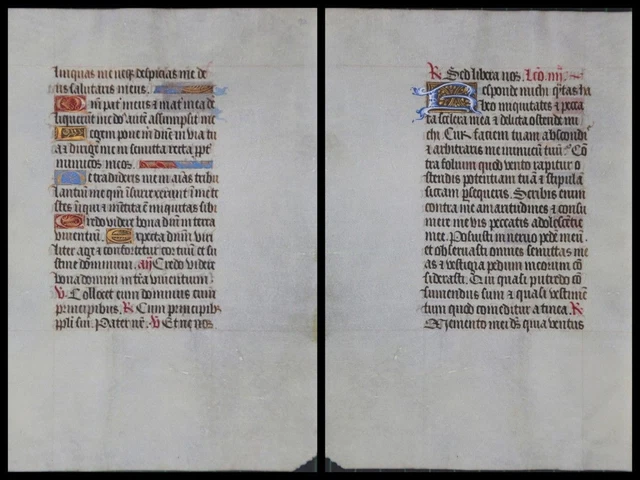 linquas me neq; despicias me de
us salutaris meus.
Qm̄ pat̄ meus & mat̄ mea de
liquerūt me dn̄s aut̄ assumpsit me
Legem pone m̄ dn̄e in via tu
a & dirige me in semita recta ꝓpt̄
inimicos meos.
Ne tradideris me in aīas tribu
lantiū me qm̄ īsurrexerūt ī me te
stes īiqui & mētita ē iniquitas sibi
Credo videre bona dn̄i in terra
viventiū. Expecta dn̄m viri
liter age & confortetur cor tuū et su
stine dominum. an̄ Credo videre
bona domini in tēra viventium
V Collocet eum dominus cum
principibus. R Cum principibus
ppl̄i sui. Pater nr̄. V Et ne nos
R Sed libera nos. Lc̄o. iiij.
Responde michi q̄tas ha
beo iniquitates & pecca
ta scelera mea & delicta ostende mi
chi Cur faciem tuam abscondis
& arbitraris me inimicū tuū? Cō
tra folium quod vento rapitur o
stendis potentiam tuā & stipulā
siccam ꝑsequeris. Scribis enim
contra me amaritudines & consu
mere me vis peccatis adolescentie
mee. Posuisti in nervo pedē meū
et observasti omnes semittas me
as & vestigia pedum meorum cō
siderasti. Qui quasi putredo cō
sumendus sum & quasi vestimē
tum quod comeditur a tinea. R
Memento mei ds̄ quia ventus